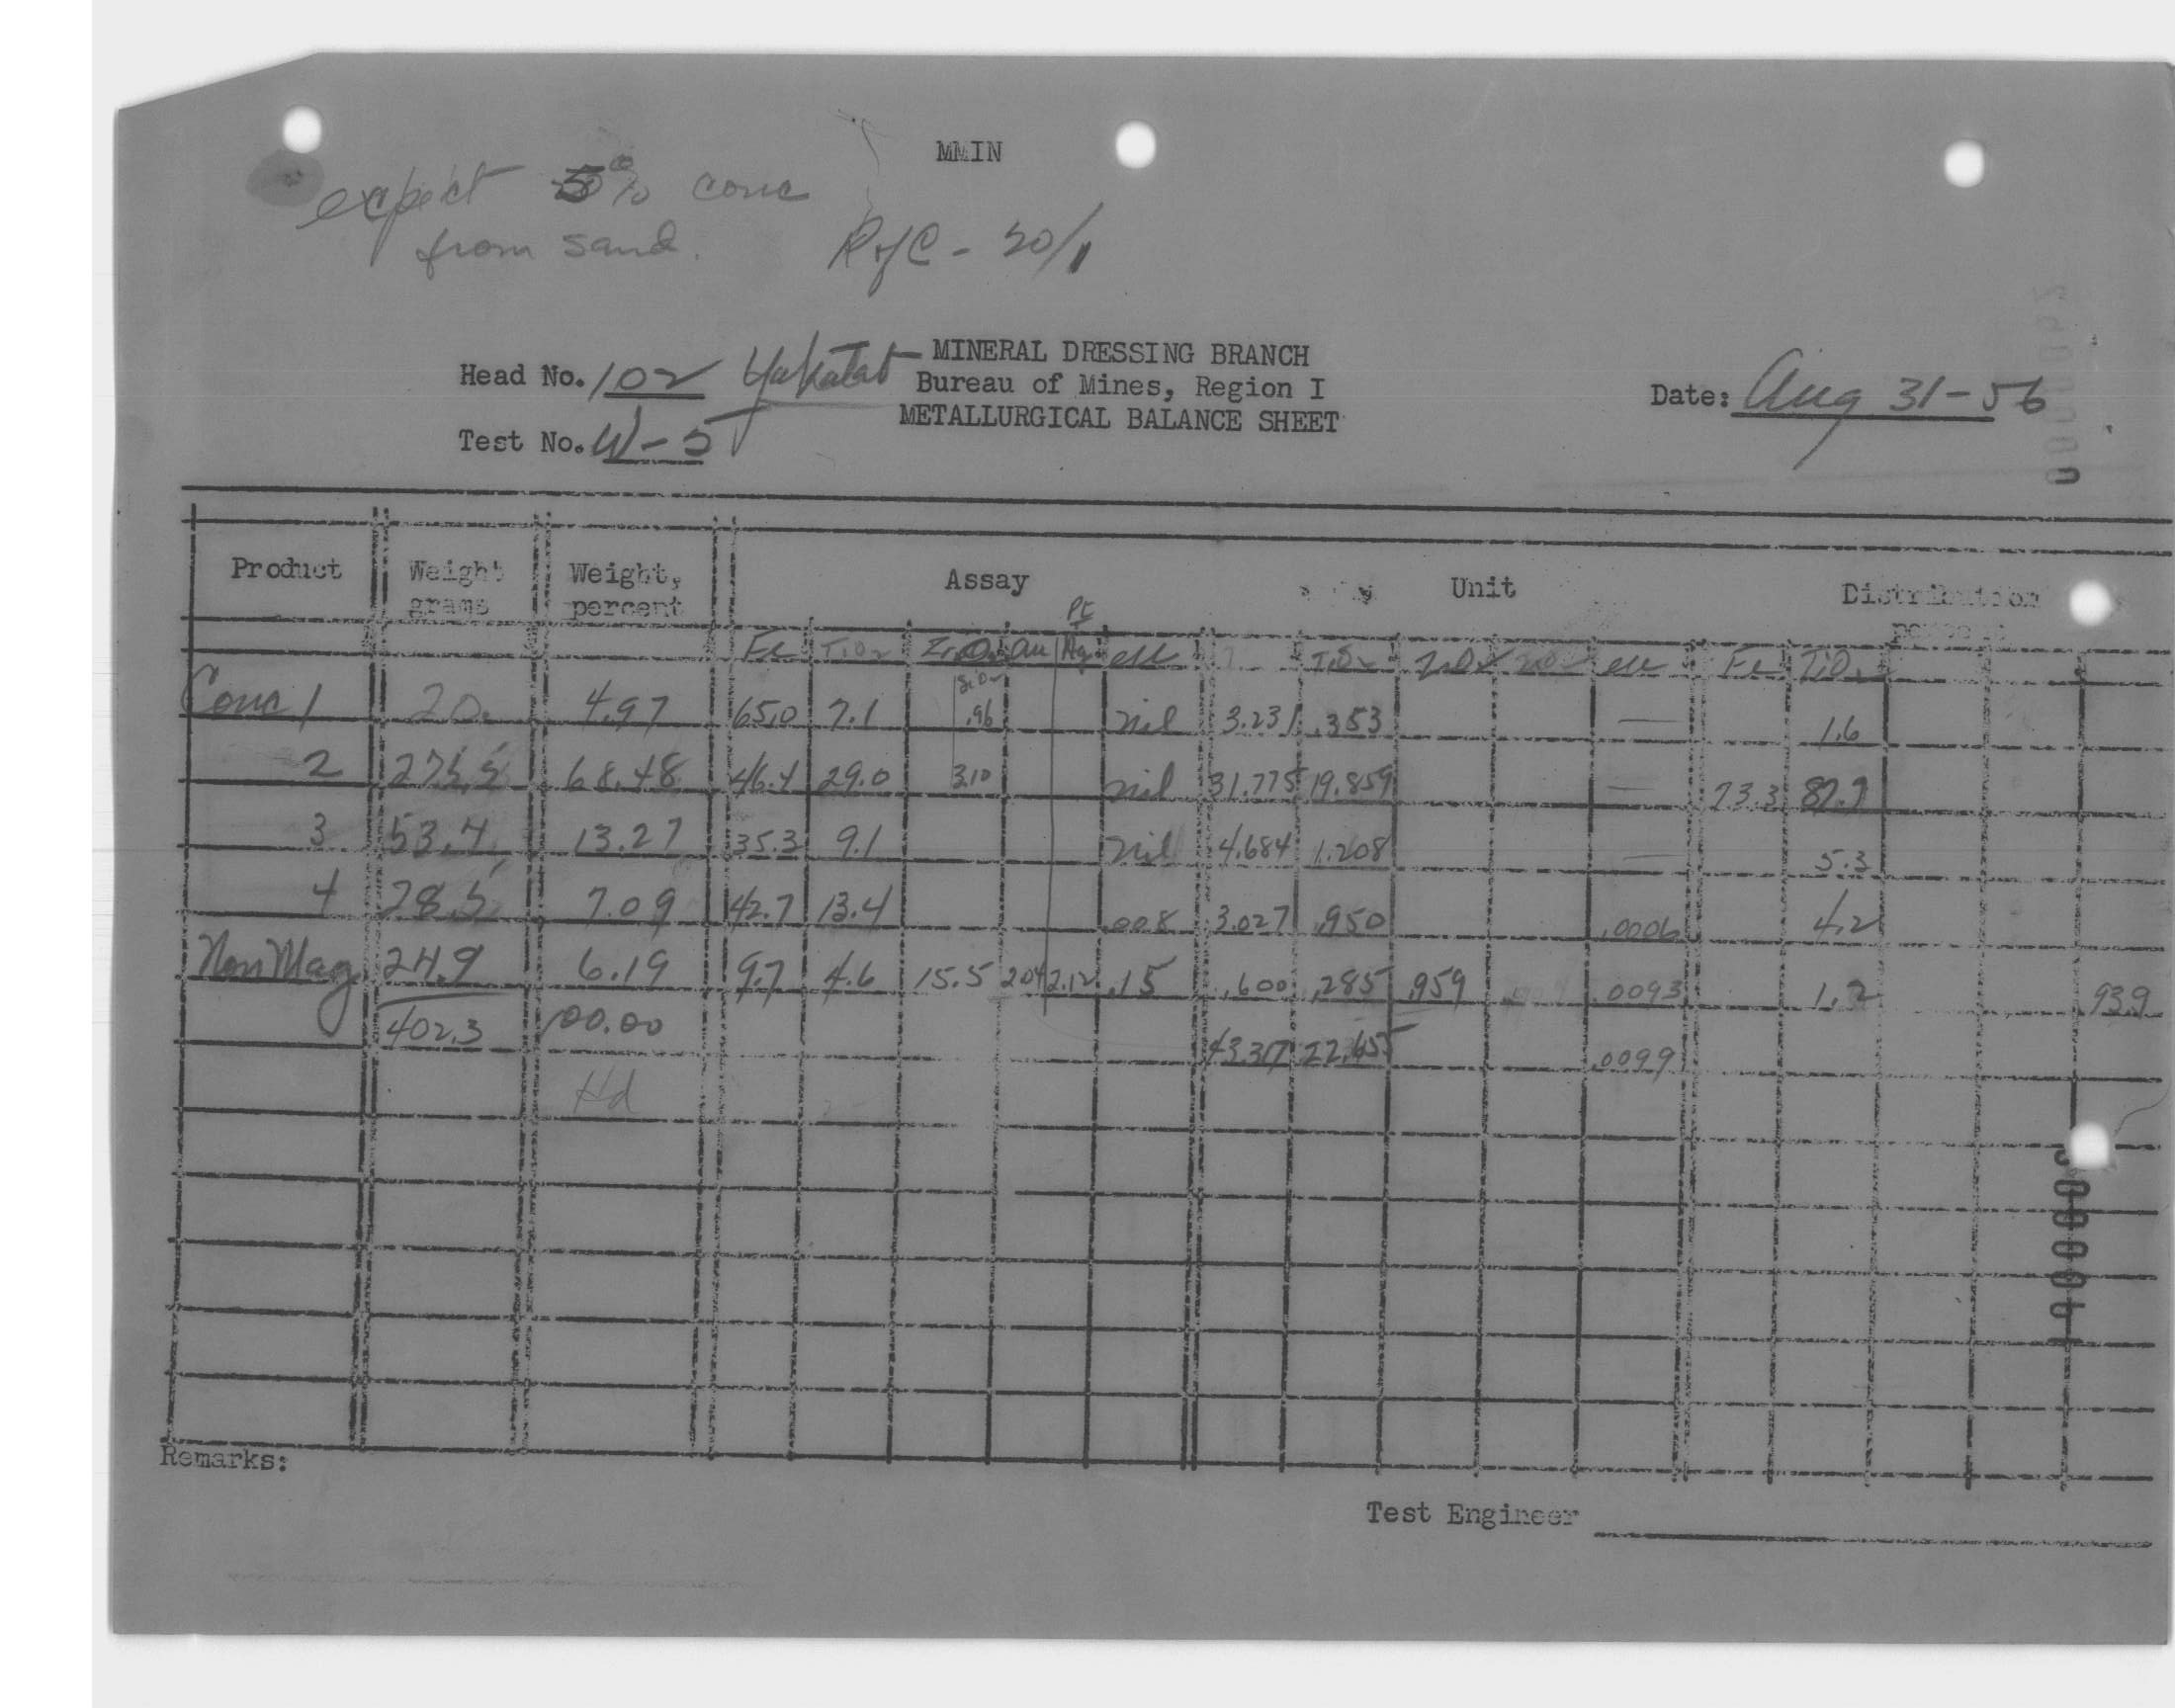 MMIN
expect 5% conc
from sand. R of C - 20/1
MINERAL DRESSING BRANCH
Head No. 102 Yakatat Bureau of Mines, Region I Date: Aug 31-56
METALLURGICAL BALANCE SHEET
Test No. W-5
Product Weight grams Weight, percent Assay Unit Distribution percent
Pt
Fe TiO2 ZrO2 Au Ag eU TiO2 ZrO2 eU Fe TiO2
SiO2
Conc 1 20. 4.97 65.0 7.1 .96 nil 3.231 .353 — 1.6
2 275.5 68.48 46.4 29.0 3.10 nil 31.775 19.859 — 73.3 87.7
3 53.4 13.27 35.3 9.1 nil 4.684 1.208 — 5.3
4 28.5 7.09 42.7 13.4 .008 3.027 .950 .0006 4.2
Non Mag 24.9 6.19 9.7 4.6 15.5 .15 .600 .285 .959 .0093 1.2 93.9
402.3 100.00 43.317 22.655 .0099
Hd
Remarks:
Test Engineer